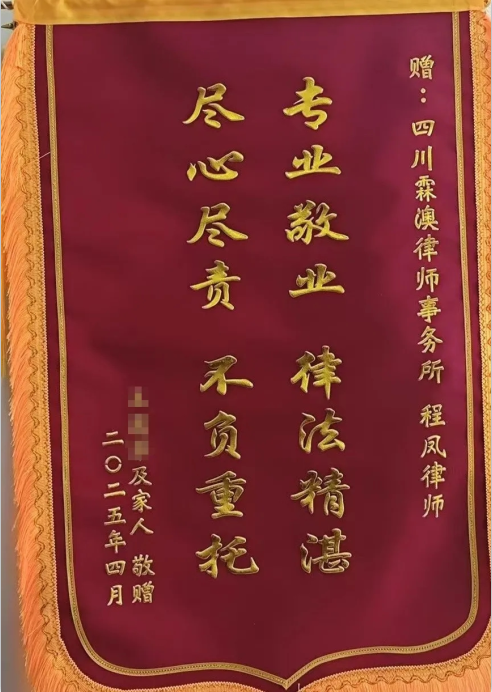 赠：四川霖澳律师事务所 程凤律师
专业敬业 律法精湛
尽心尽责 不负重托
及家人 敬赠
二〇二五年四月